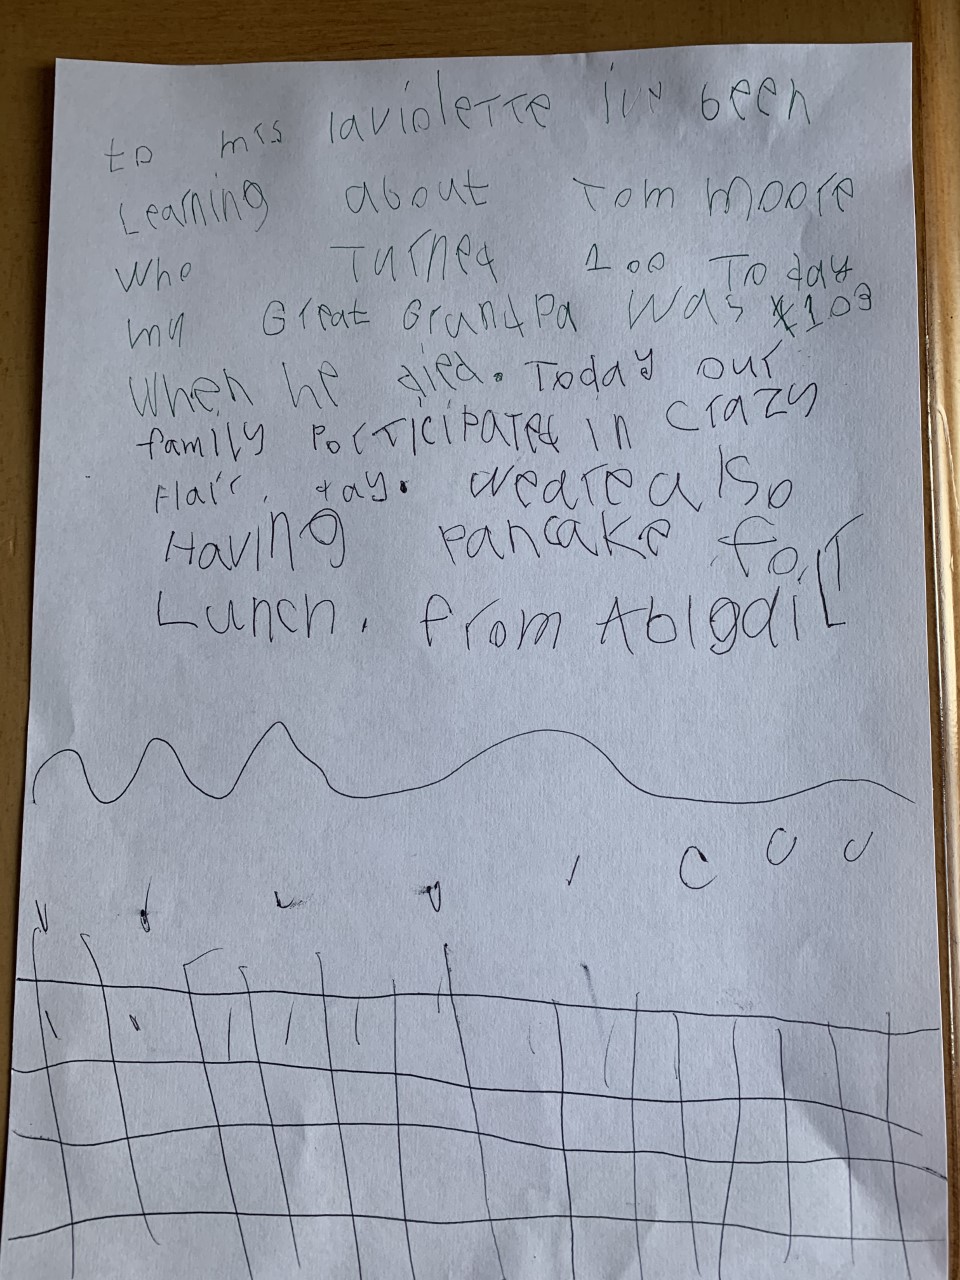 to mrs laviolette ive been
Learning about Tom moore
who Turned 100 Today
my Great Grandpa was 103
When he died. Today our
family Participated in crazy
Hair. day. we are also
Having Pancake for
Lunch. from Abigail